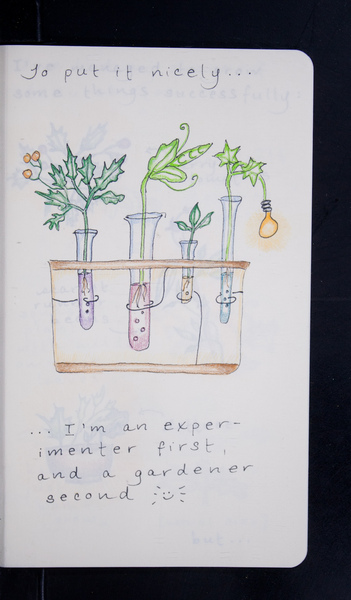 To put it nicely...
... I'm an exper-
imenter first,
and a gardener
second